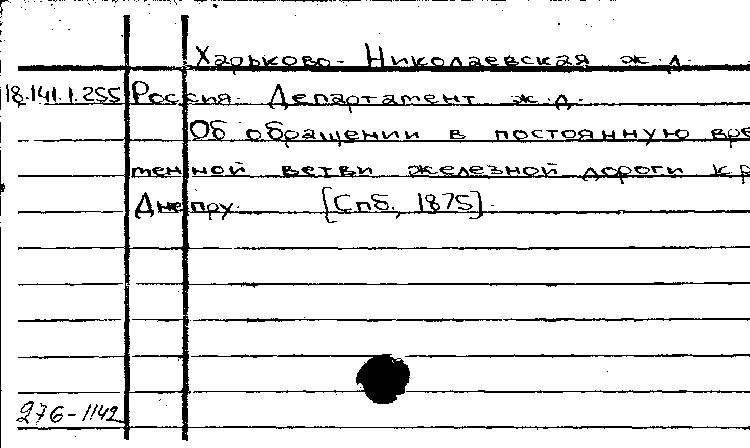 Харьково-Николаевская ж.д.
18.141.1.255 Россия. Департамент ж.д.
Об обращении в постоянную вре
менной ветви железной дороги к р
Днепру. [Спб., 1875].
276-1142